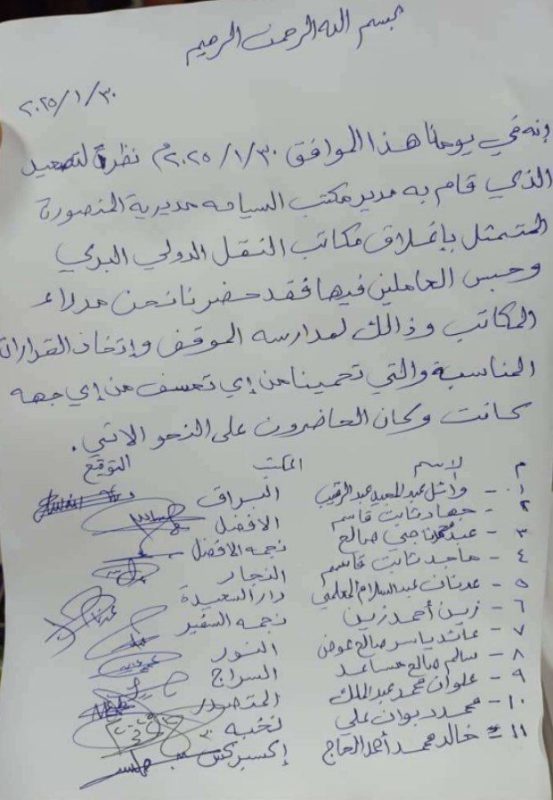 بسم الله الرحمن الرحيم
٢٠٢٥/١/٣٠
إنه في يومنا هذا الموافق ٢٠٢٥/١/٣٠م نظرة لتصعيد
الذي قام به مدير مكتب السياحه مديرية المنصورة
المتمثل بإغلاق مكاتب النقل الدولي البري
وحبس العاملين فيها فقد حضرنا نحن مدراء
المكاتب وذالك لمدارسه الموقف وإتخاذ القرارات
المناسبة والتي تحمينا من إي تعسف من إي جهه
كانت وكان الحاضرون على النحو الاتي.
م الاسم المكتب التوقيع
١- وائل عبدالمجيد عبدالرقيب البراق
٢- جهاد ثابت قاسم الافضل
٣- عبده ناجي صالح نجمه الافضل
٤- ماجد ثابت قاسم النجار
٥- عدنان عبدالسلام المعلمي دار السعيدة
٦- زين أحمد زين نجمه السفير
٧- عائد ياسر صالح عوض النور
٨- سالم صالح مساعد السراج
٩- علوان محمد عبدالملك المتصدر
١٠- محمد ديوان علي نخبه
١١- خالد محمد أحمد الحاج إكسبركس